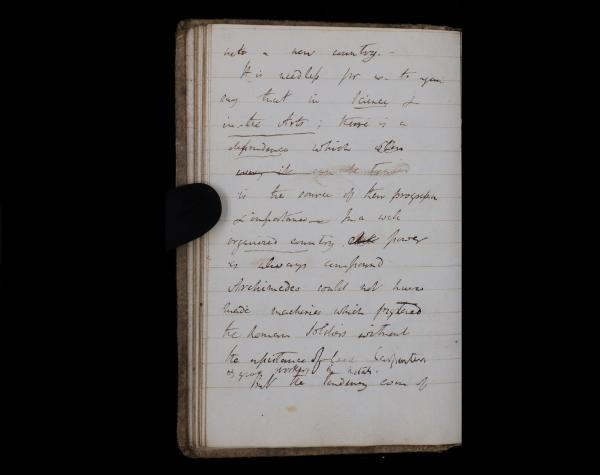 into a new country. –
It is needless for me to again
say that in Science &
in the Arts; there is a
dependence which often
is the source of their progression
& importance – In a well
organized country power
is always compound
Archimedes could not have
made machines which frightened
the Roman Soldiers without
the assistance of good Carpenters
& good workers in metals.
But the tendency even of